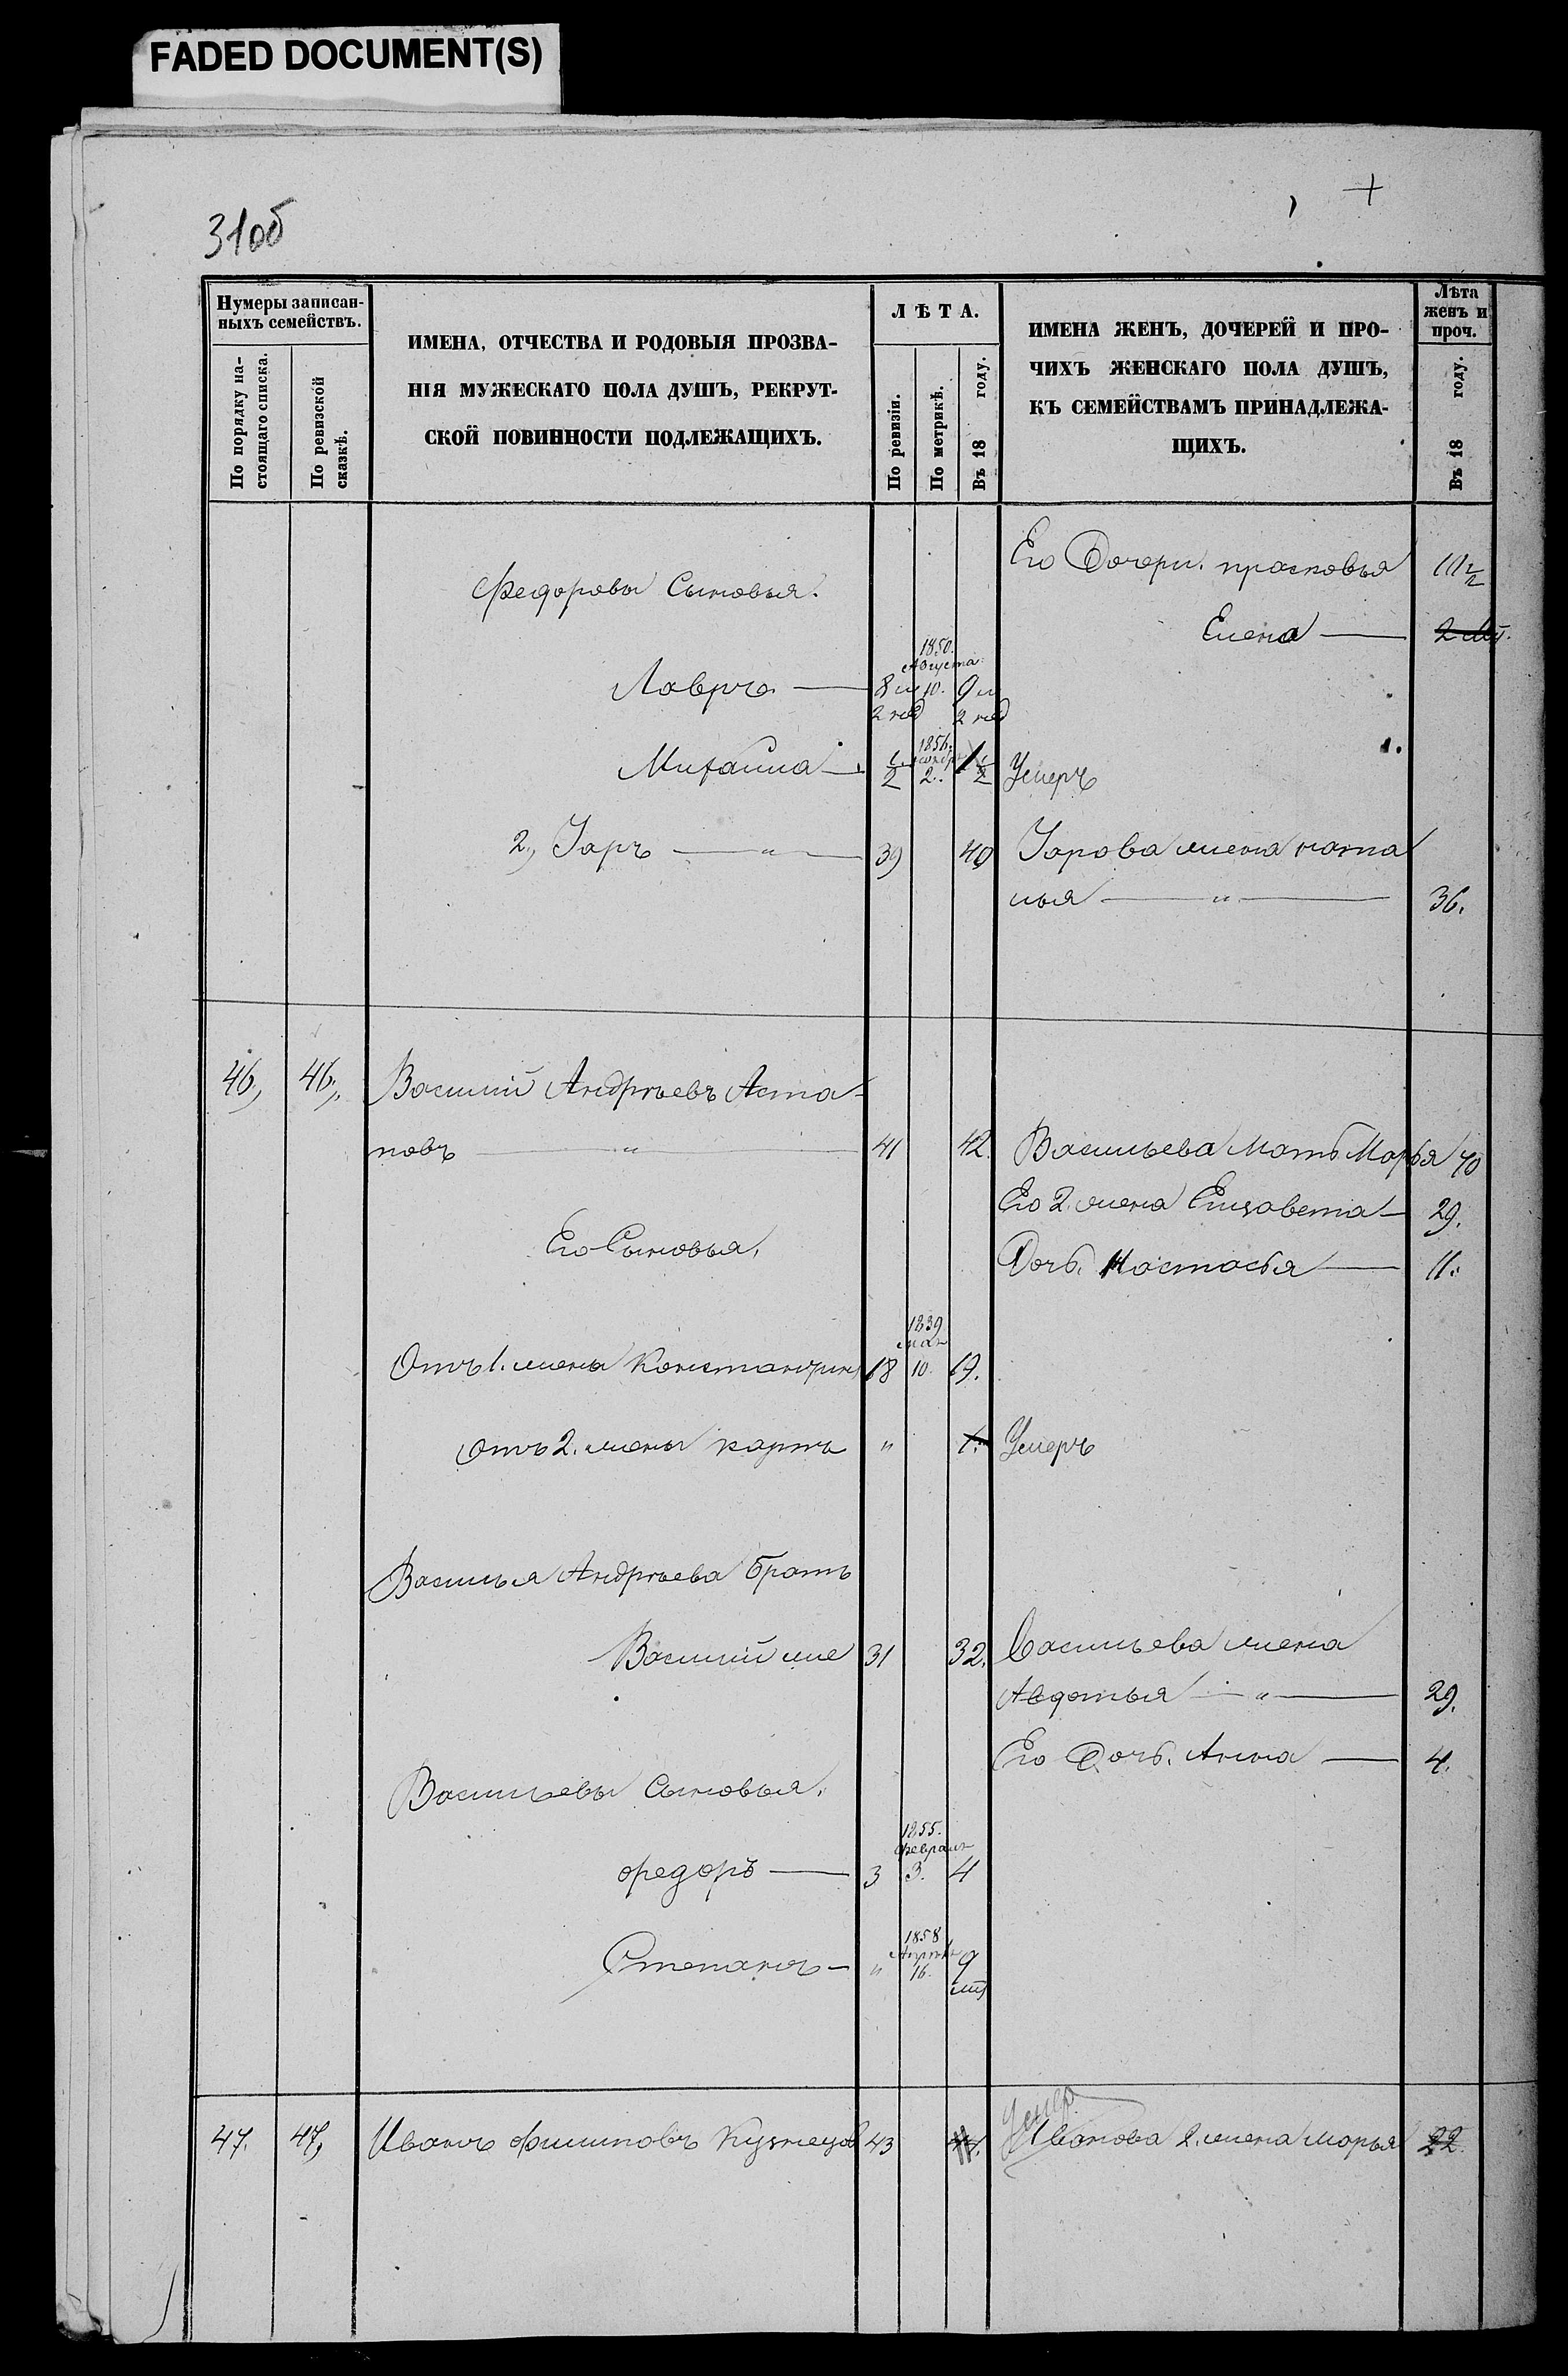 FADED DOCUMENT(S)
31об
Нумеры записан-
ныхъ семействъ.
По порядку на-
стоящаго списка.
По ревизской
сказкѣ.
ИМЕНА, ОТЧЕСТВА И РОДОВЫЯ ПРОЗВА-
НІЯ МУЖЕСКАГО ПОЛА ДУШЪ, РЕКРУТ-
СКОЙ ПОВИННОСТИ ПОДЛЕЖАЩИХЪ.
ЛѢТА.
По ревизіи.
По метрикѣ.
Въ 18 году.
ИМЕНА ЖЕНЪ, ДОЧЕРЕЙ И ПРО-
ЧИХЪ ЖЕНСКАГО ПОЛА ДУШЪ,
КЪ СЕМЕЙСТВАМЪ ПРИНАДЛЕЖА-
ЩИХЪ.
Лѣта
женъ и
проч.
Въ 18 году.
Его Дочери. прасковья
Федоровы Сыновья.
Елена
1850.
Августа
Лавръ 8 10. 9
2 нед 2 нед
Михаила 1/2 2. 1 1/2 Умеръ
2, Уаръ 39 40 Уарова жена ната
лья 36.
46, 46, Василий Андрѣевъ Аста-
повъ 41 42. Васильева мать Марья 70
Его 2. жена Елизавета 29.
Его Сыновья.
Дочь. Настасья 11.
1839
мая
Отъ 1. жены Константинъ 18 10. 19.
отъ 2. жены карпъ " 1. Умеръ
Василья Андрѣева братъ
Василий же 31 32. Васильева жена
Авдотья 29.
Его Дочь. Анна 4.
Васильевы Сыновья.
1855.
Февраля
федоръ 3 3. 4
1858
Апрѣля
Степанъ " 16. 9
мѣ
Умер
47. 47, Иванъ филиповъ Кузнецов 43 44. Иванова 2. жена марья 22.